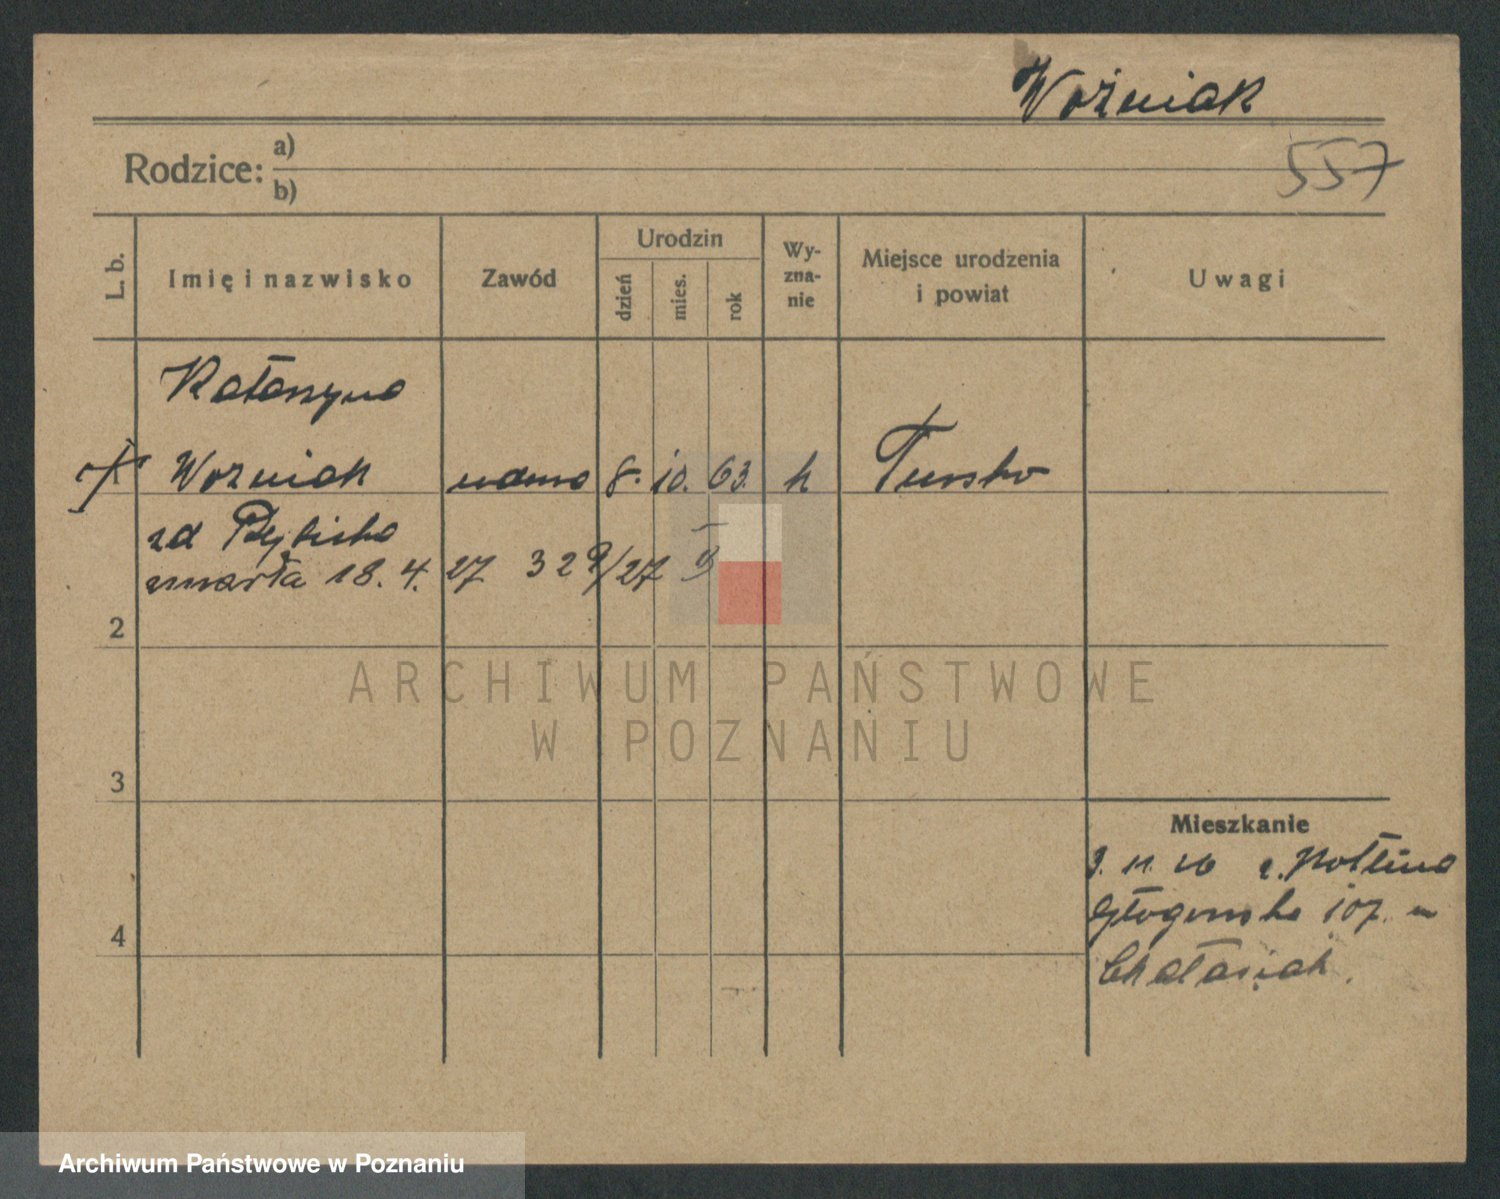 Woźniak
557
Rodzice: a)
b)
L. b.
Imię i nazwisko
Zawód
Urodzin
dzień
mies.
rok
Wy-
zna-
nie
Miejsce urodzenia
i powiat
Uwagi
Katarzyna
1 Woźniak wdowa 8. 10. 63. k Tursko
zd
zmarła 18. 4. 27 329/27
2
ARCHIWUM PAŃSTWOWE
W POZNANIU
3
Mieszkanie
3. 11. 26 z
107.
4
Archiwum Państwowe w Poznaniu